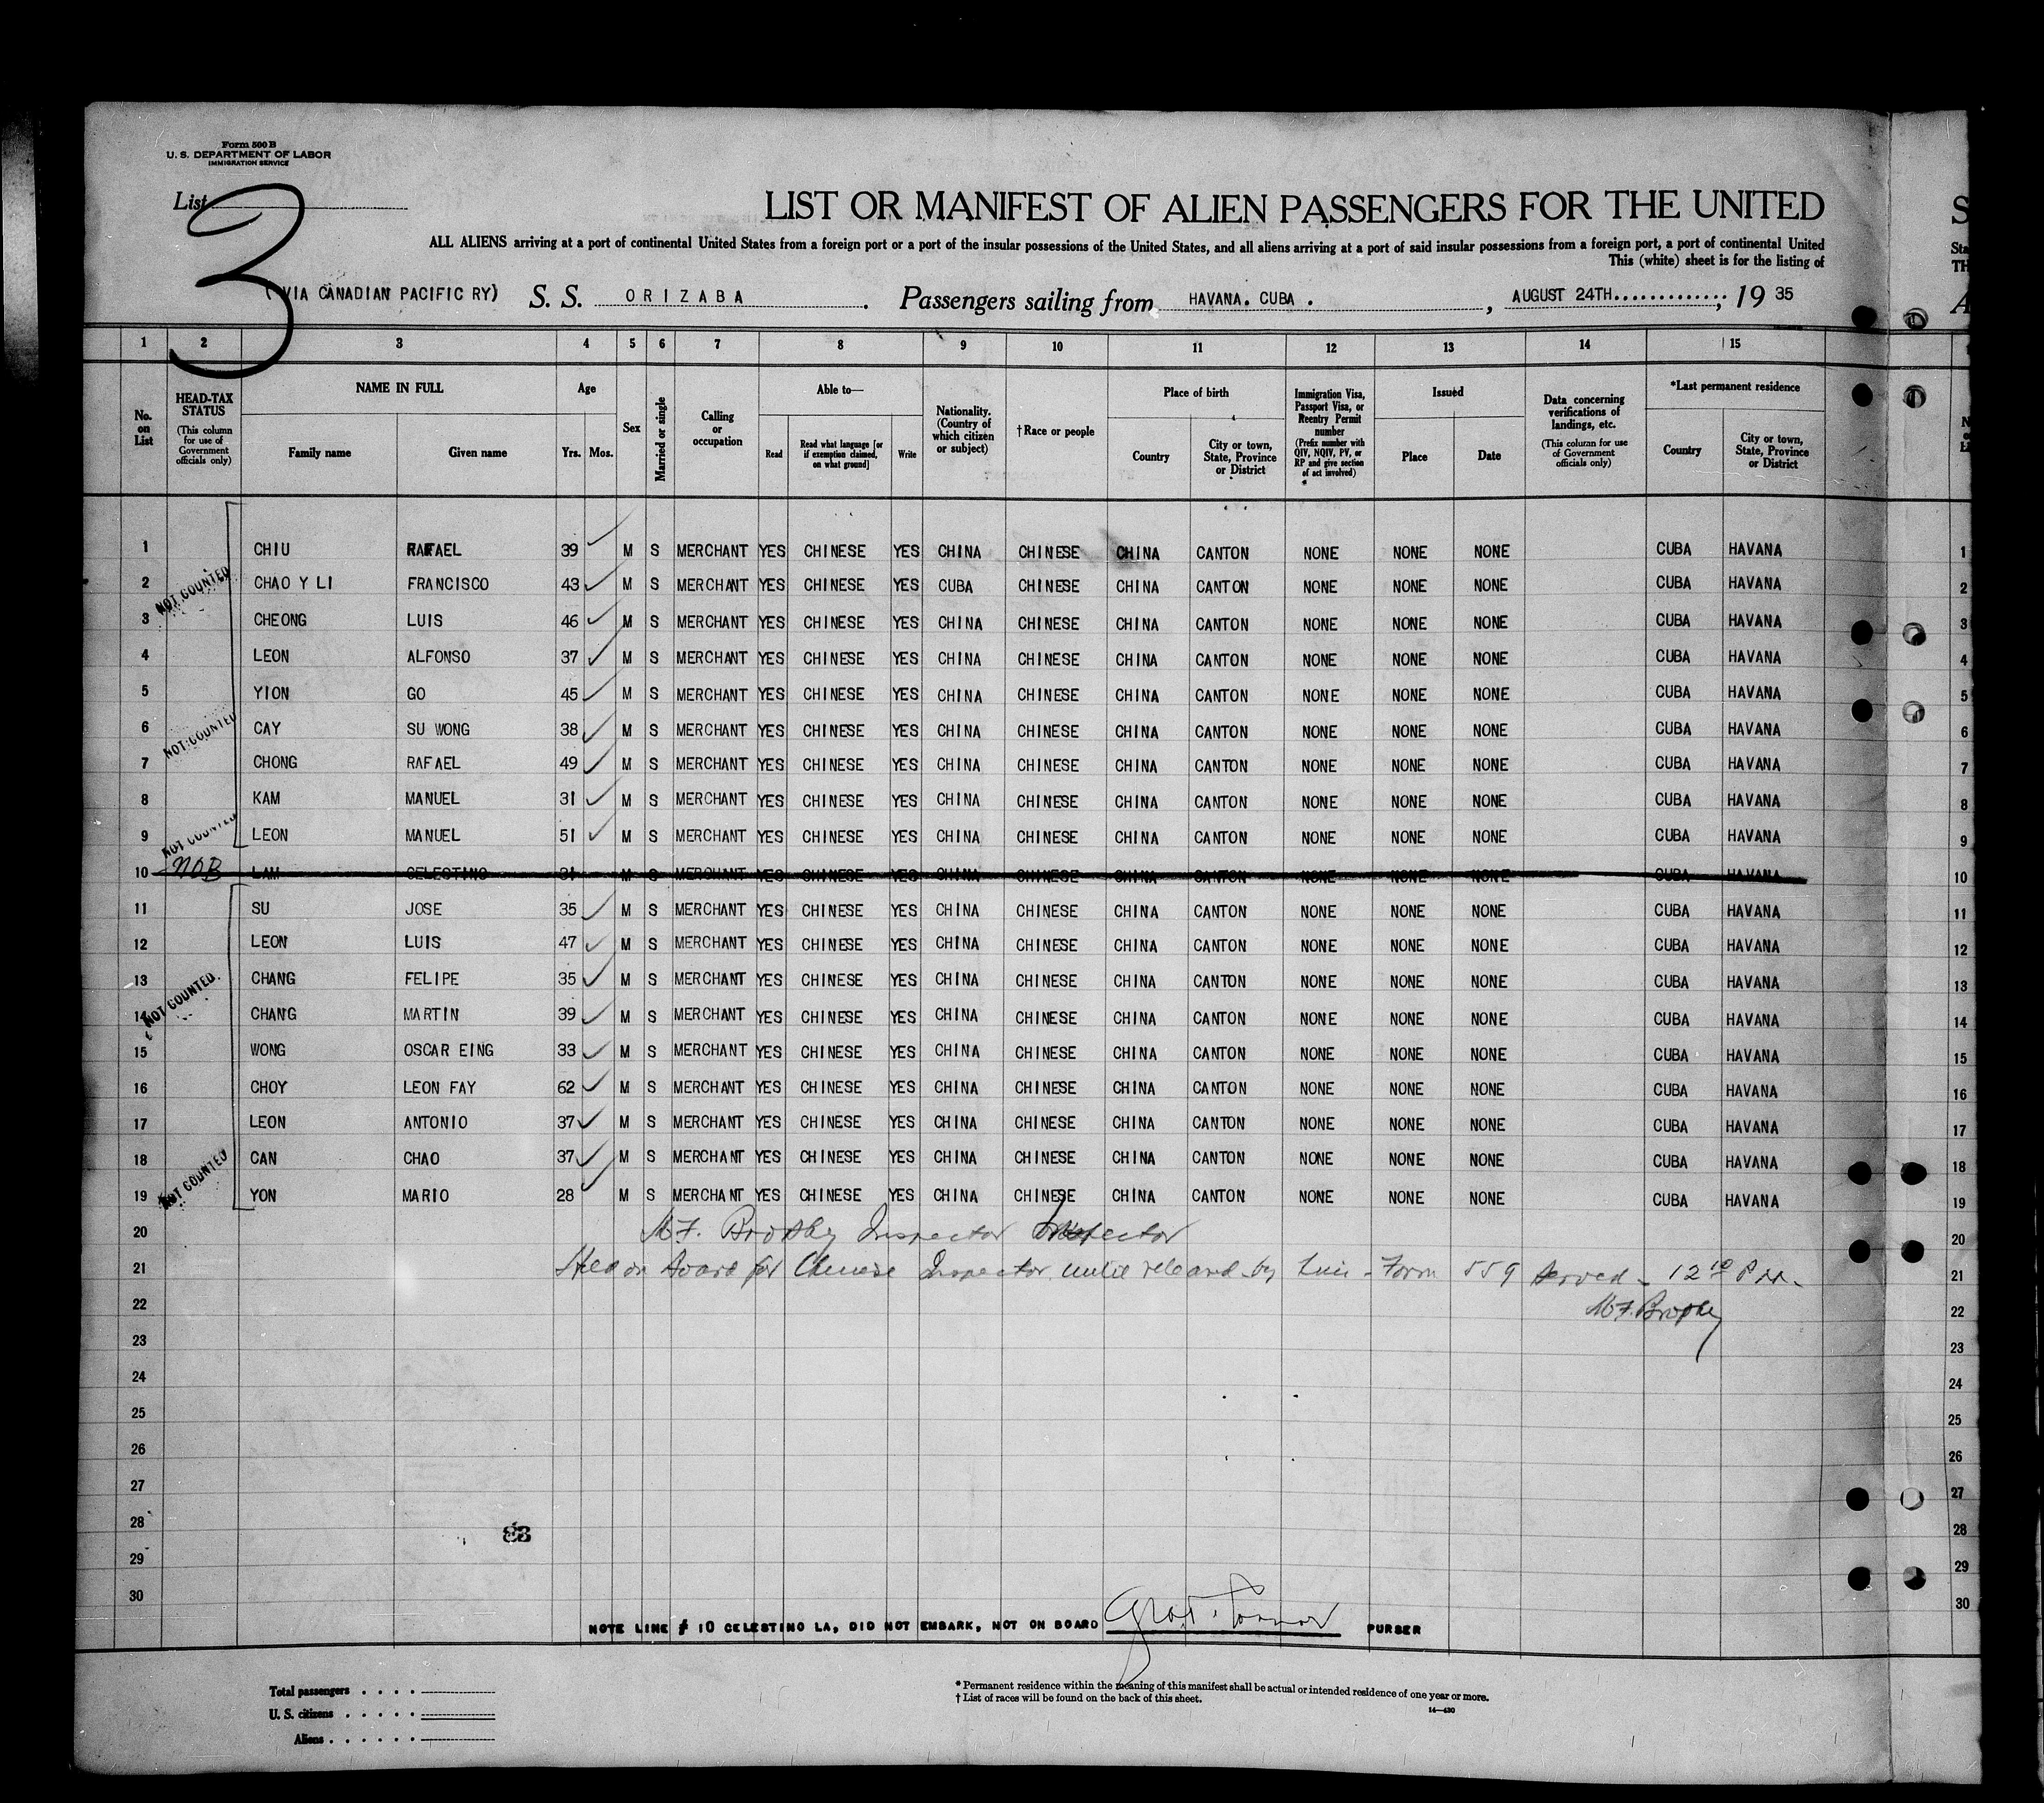 Form 500 B
U. S. DEPARTMENT OF LABOR
IMMIGRATION SERVICE
List
3
LIST OR MANIFEST OF ALIEN PASSENGERS FOR THE UNITED
ALL ALIENS arriving at a port of continental United States from a foreign port or a port of the insular possessions of the United States, and all aliens arriving at a port of said insular possessions from a foreign port, a port of continental United
This (white) sheet is for the listing of
(VIA CANADIAN PACIFIC RY) S. S. ORIZABA. Passengers sailing from HAVANA. CUBA., AUGUST 24TH............., 19 35
1 2 3 4 5 6 7 8 9 10 11 12 13 14 15
No. on List
HEAD-TAX STATUS (This column for use of Government officials only)
NAME IN FULL
Family name Given name
Age
Yrs. Mos.
Sex
Married or single
Calling or occupation
Able to—
Read Read what language [or if exemption claimed, on what ground] Write
Nationality. (Country of which citizen or subject)
†Race or people
Place of birth
Country City or town, State, Province or District
Immigration Visa, Passport Visa, or Reentry Permit number (Prefix number with QIV, NQIV, PV, or RP and give section of act involved)
Issued
Place Date
Data concerning verifications of landings, etc. (This column for use of Government officials only)
*Last permanent residence
Country City or town, State, Province or District
1 CHIU RAFAEL 39 M S MERCHANT YES CHINESE YES CHINA CHINESE CHINA CANTON NONE NONE NONE CUBA HAVANA 1
NOT COUNTED
2 CHAO Y LI FRANCISCO 43 M S MERCHANT YES CHINESE YES CUBA CHINESE CHINA CANTON NONE NONE NONE CUBA HAVANA 2
3 CHEONG LUIS 46 M S MERCHANT YES CHINESE YES CHINA CHINESE CHINA CANTON NONE NONE NONE CUBA HAVANA 3
4 LEON ALFONSO 37 M S MERCHANT YES CHINESE YES CHINA CHINESE CHINA CANTON NONE NONE NONE CUBA HAVANA 4
5 YION GO 45 M S MERCHANT YES CHINESE YES CHINA CHINESE CHINA CANTON NONE NONE NONE CUBA HAVANA 5
NOT COUNTED
6 CAY SU WONG 38 M S MERCHANT YES CHINESE YES CHINA CHINESE CHINA CANTON NONE NONE NONE CUBA HAVANA 6
7 CHONG RAFAEL 49 M S MERCHANT YES CHINESE YES CHINA CHINESE CHINA CANTON NONE NONE NONE CUBA HAVANA 7
8 KAM MANUEL 31 M S MERCHANT YES CHINESE YES CHINA CHINESE CHINA CANTON NONE NONE NONE CUBA HAVANA 8
NOT COUNTED
9 LEON MANUEL 51 M S MERCHANT YES CHINESE YES CHINA CHINESE CHINA CANTON NONE NONE NONE CUBA HAVANA 9
10 NOB LAM CELESTINO 31 M S MERCHANT YES CHINESE YES CHINA CHINESE CHINA CANTON NONE NONE NONE CUBA HAVANA 10
11 SU JOSE 35 M S MERCHANT YES CHINESE YES CHINA CHINESE CHINA CANTON NONE NONE NONE CUBA HAVANA 11
12 LEON LUIS 47 M S MERCHANT YES CHINESE YES CHINA CHINESE CHINA CANTON NONE NONE NONE CUBA HAVANA 12
13 CHANG FELIPE 35 M S MERCHANT YES CHINESE YES CHINA CHINESE CHINA CANTON NONE NONE NONE CUBA HAVANA 13
NOT COUNTED
14 CHANG MARTIN 39 M S MERCHANT YES CHINESE YES CHINA CHINESE CHINA CANTON NONE NONE NONE CUBA HAVANA 14
15 WONG OSCAR EING 33 M S MERCHANT YES CHINESE YES CHINA CHINESE CHINA CANTON NONE NONE NONE CUBA HAVANA 15
16 CHOY LEON FAY 62 M S MERCHANT YES CHINESE YES CHINA CHINESE CHINA CANTON NONE NONE NONE CUBA HAVANA 16
17 LEON ANTONIO 37 M S MERCHANT YES CHINESE YES CHINA CHINESE CHINA CANTON NONE NONE NONE CUBA HAVANA 17
18 CAN CHAO 37 M S MERCHANT YES CHINESE YES CHINA CHINESE CHINA CANTON NONE NONE NONE CUBA HAVANA 18
NOT COUNTED
19 YON MARIO 28 M S MERCHANT YES CHINESE YES CHINA CHINESE CHINA CANTON NONE NONE NONE CUBA HAVANA 19
20 M F. Brophy Inspector 20
21 Held on Board for Chinese Inspector until released by him - Form 559 served - 12 10 P M. 21
22 M F. Brophy 22
23 23
24 24
25 25
26 26
27 27
28 28
83
29 29
30 30
NOTE LINE # 10 CELESTINO LA, DID NOT EMBARK, NOT ON BOARD PURSER
Total passengers
U. S. citizens
Aliens
* Permanent residence within the meaning of this manifest shall be actual or intended residence of one year or more.
† List of races will be found on the back of this sheet.
14—430